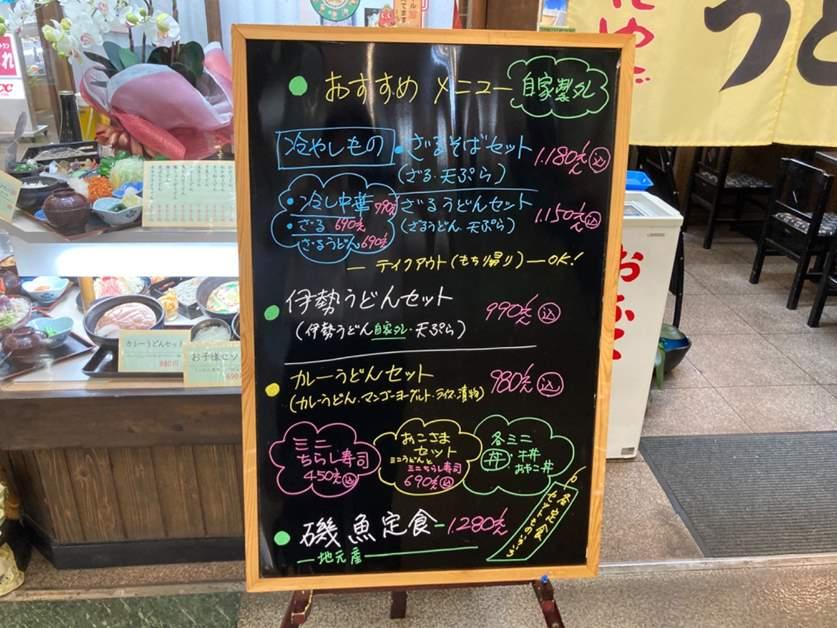 おすすめ メニュー
自家製タレ
冷やしもの
・ざるそばセット 1.180えん 込
(ざる・天ぷら)
・冷し中華 990えん
・ざる 690えん
ざるうどん 690えん
ざるうどんセット 1.150えん 込
(ざるうどん 天ぷら)
テイクアウト(もち帰り)ーOK!
伊勢うどんセット 990えん 込
(伊勢うどん自家タレ・天ぷら)
カレーうどんセット 980えん 込
(カレーうどん・マンゴーヨーグルト・ライス・漬物)
ミニ
ちらし寿司
450えん 込
おこさま
セット
ミニうどんと
ミニちらし寿司
690えん 込
各ミニ
丼・牛丼
おやこ丼
磯魚定食 1.280えん
地元産
各定食
カレーうどんセット
880円
お子様
うど